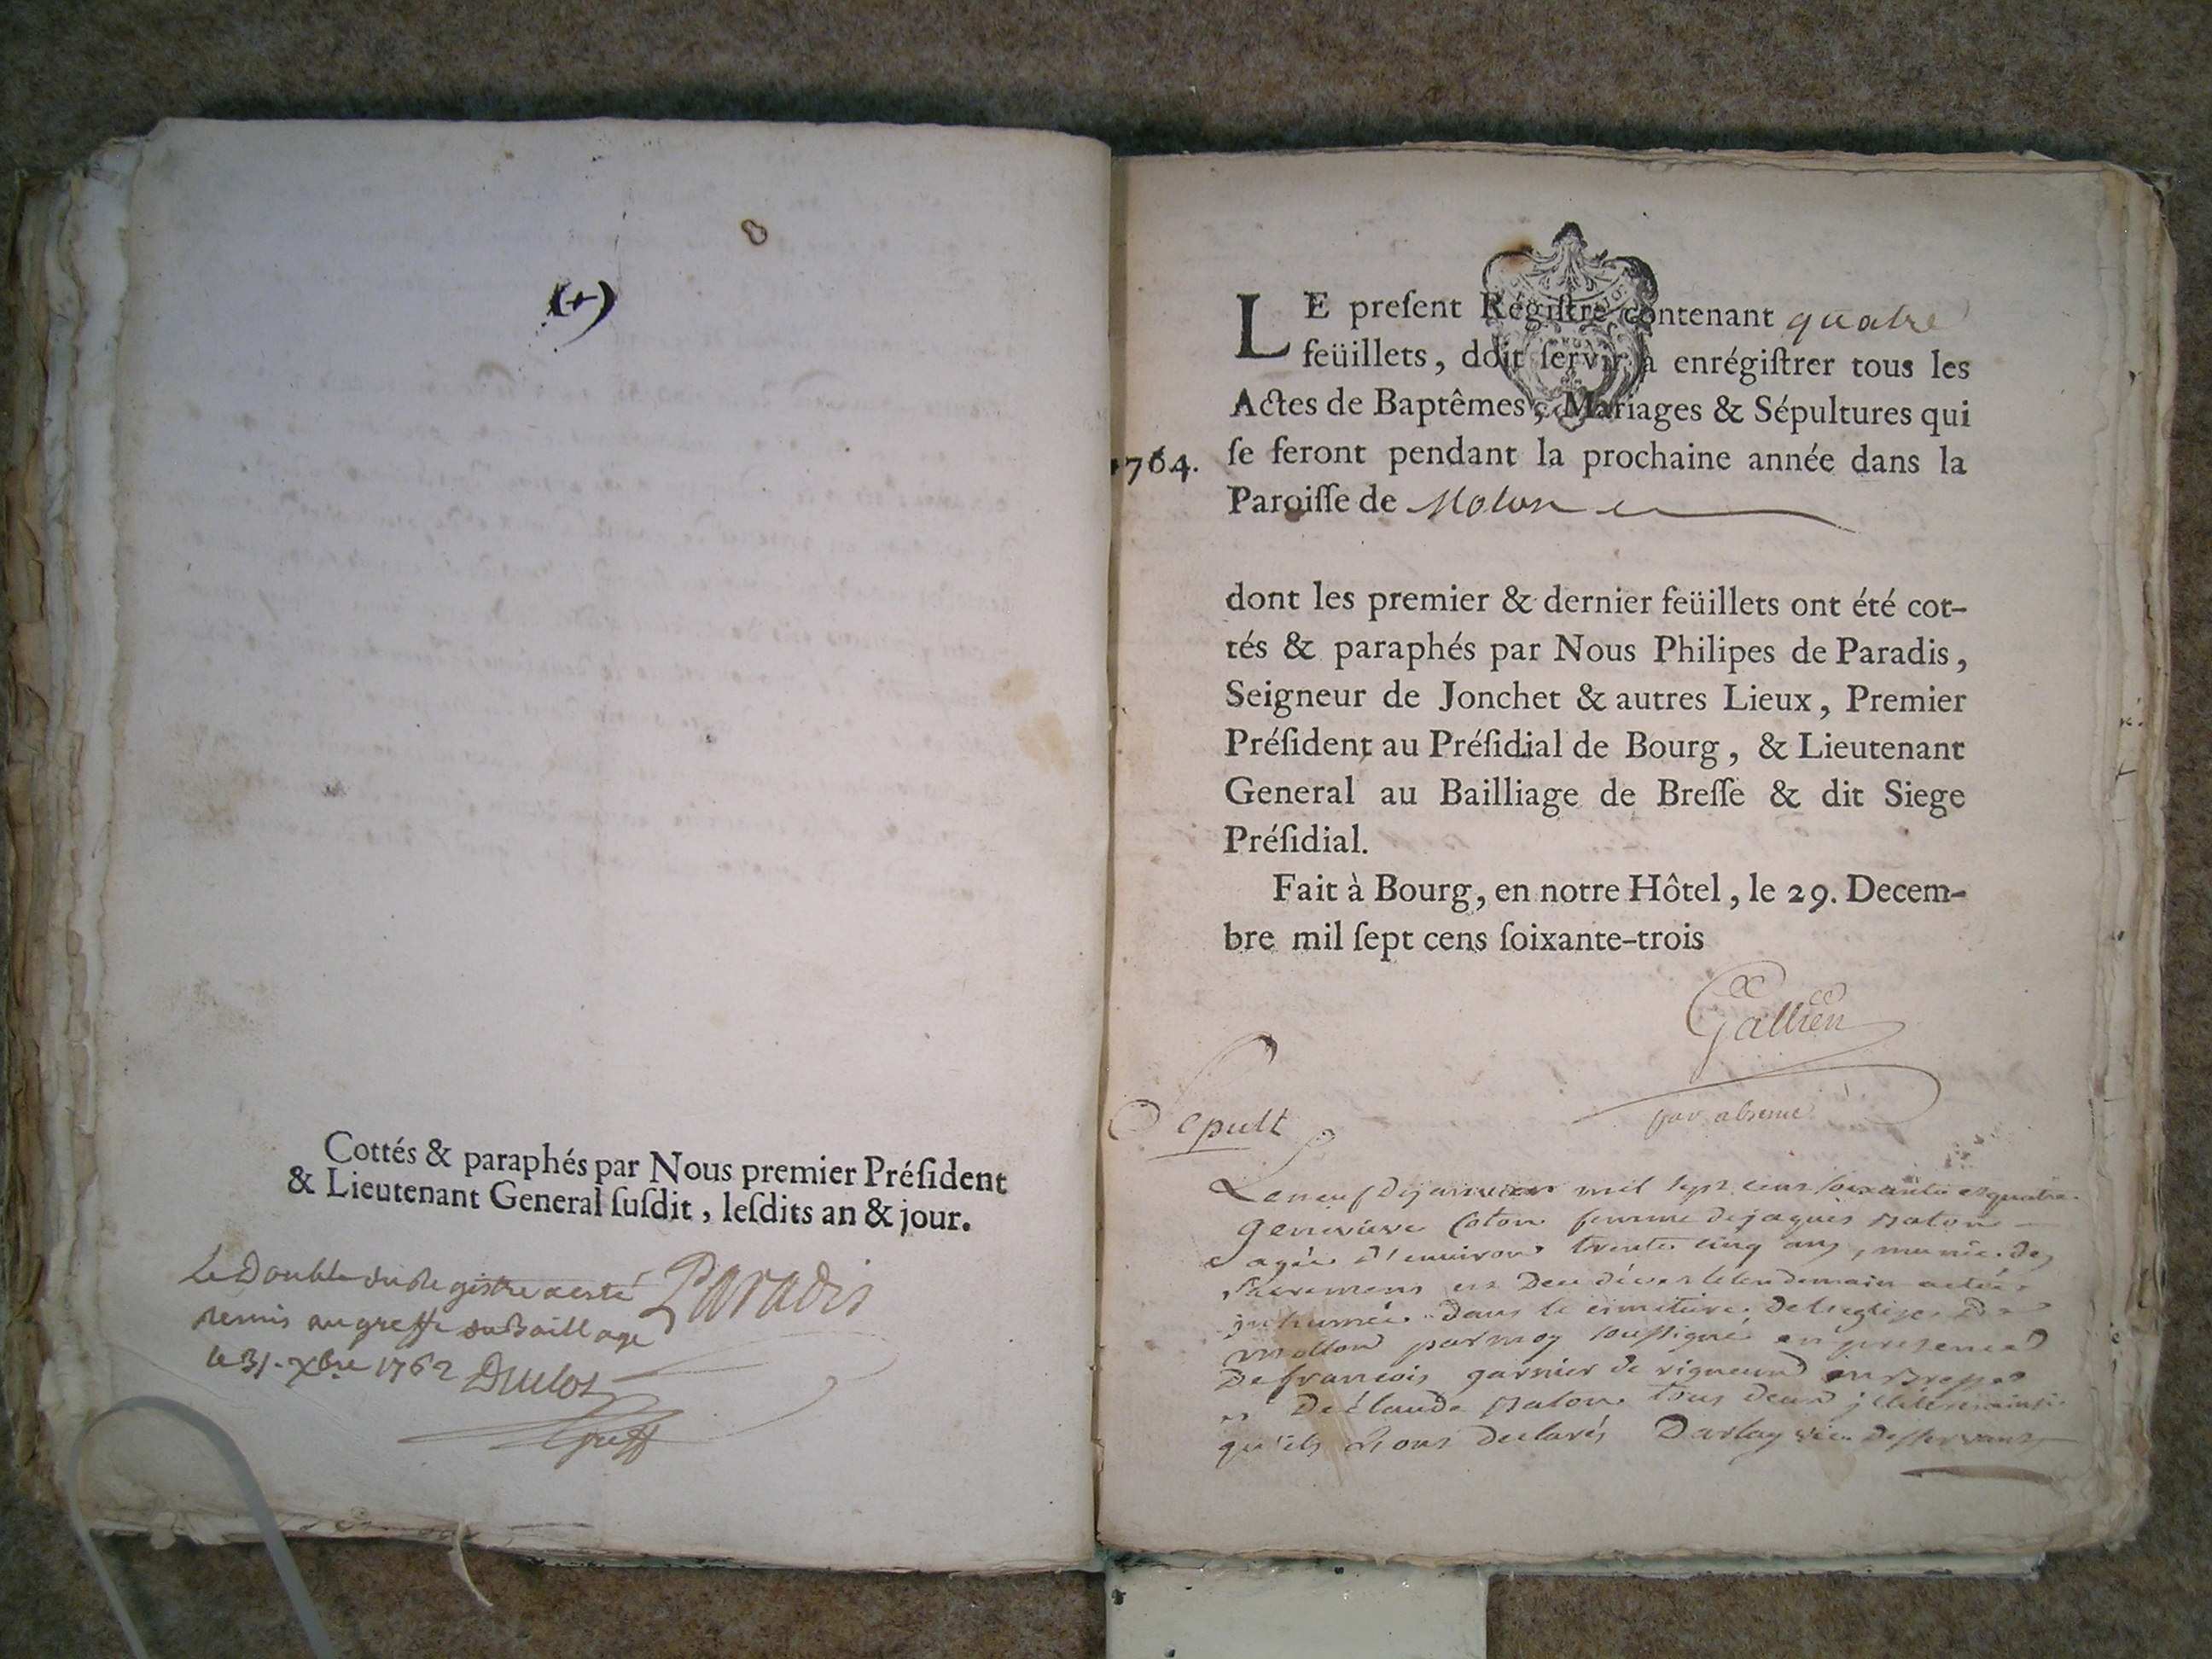 Cottés & paraphés par Nous premier Préſident
& Lieutenant General ſuſdit, leſdits an & jour.
Le Double du Registre a esté
remis au greffe du Baillage
le 31. xbre 1762
Paradis
Duclos
Greff
LE preſent Régiſtre contenant quatre
feüillets, doit ſervir à enrégiſtrer tous les
Actes de Baptêmes, Mariages & Sépultures qui
1764. ſe feront pendant la prochaine année dans la
Paroiſſe de Molon
dont les premier & dernier feüillets ont été cot-
tés & paraphés par Nous Philipes de Paradis,
Seigneur de Jonchet & autres Lieux, Premier
Préſident au Préſidial de Bourg, & Lieutenant
General au Bailliage de Breſſe & dit Siege
Préſidial.
Fait à Bourg, en notre Hôtel, le 29. Decem-
bre mil ſept cens ſoixante-trois
Gallien
par absence
Sepult
Le neuf de janvier mil sept cens soixante et quatre
genevieve Coton femme de jaques
agée d'environ trente cinq ans, munie des
Sacremens est Decedée et le lendemain a eté
inhumée dans le cimetiere de l'eglise de
mollon par moy soussigné en presence
de francois garnier de rigneux en Bresse
et De Claude tous deux illiteres ainsi
qu'ils l'ont declarés Darlay vic. desservant